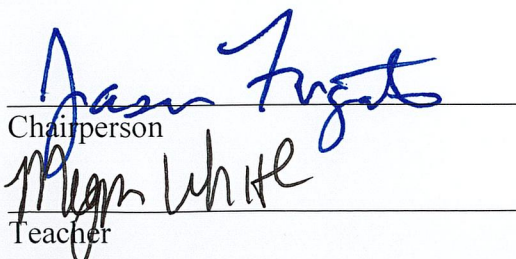 Jason Fugate
Chairperson
Megan White
Teacher